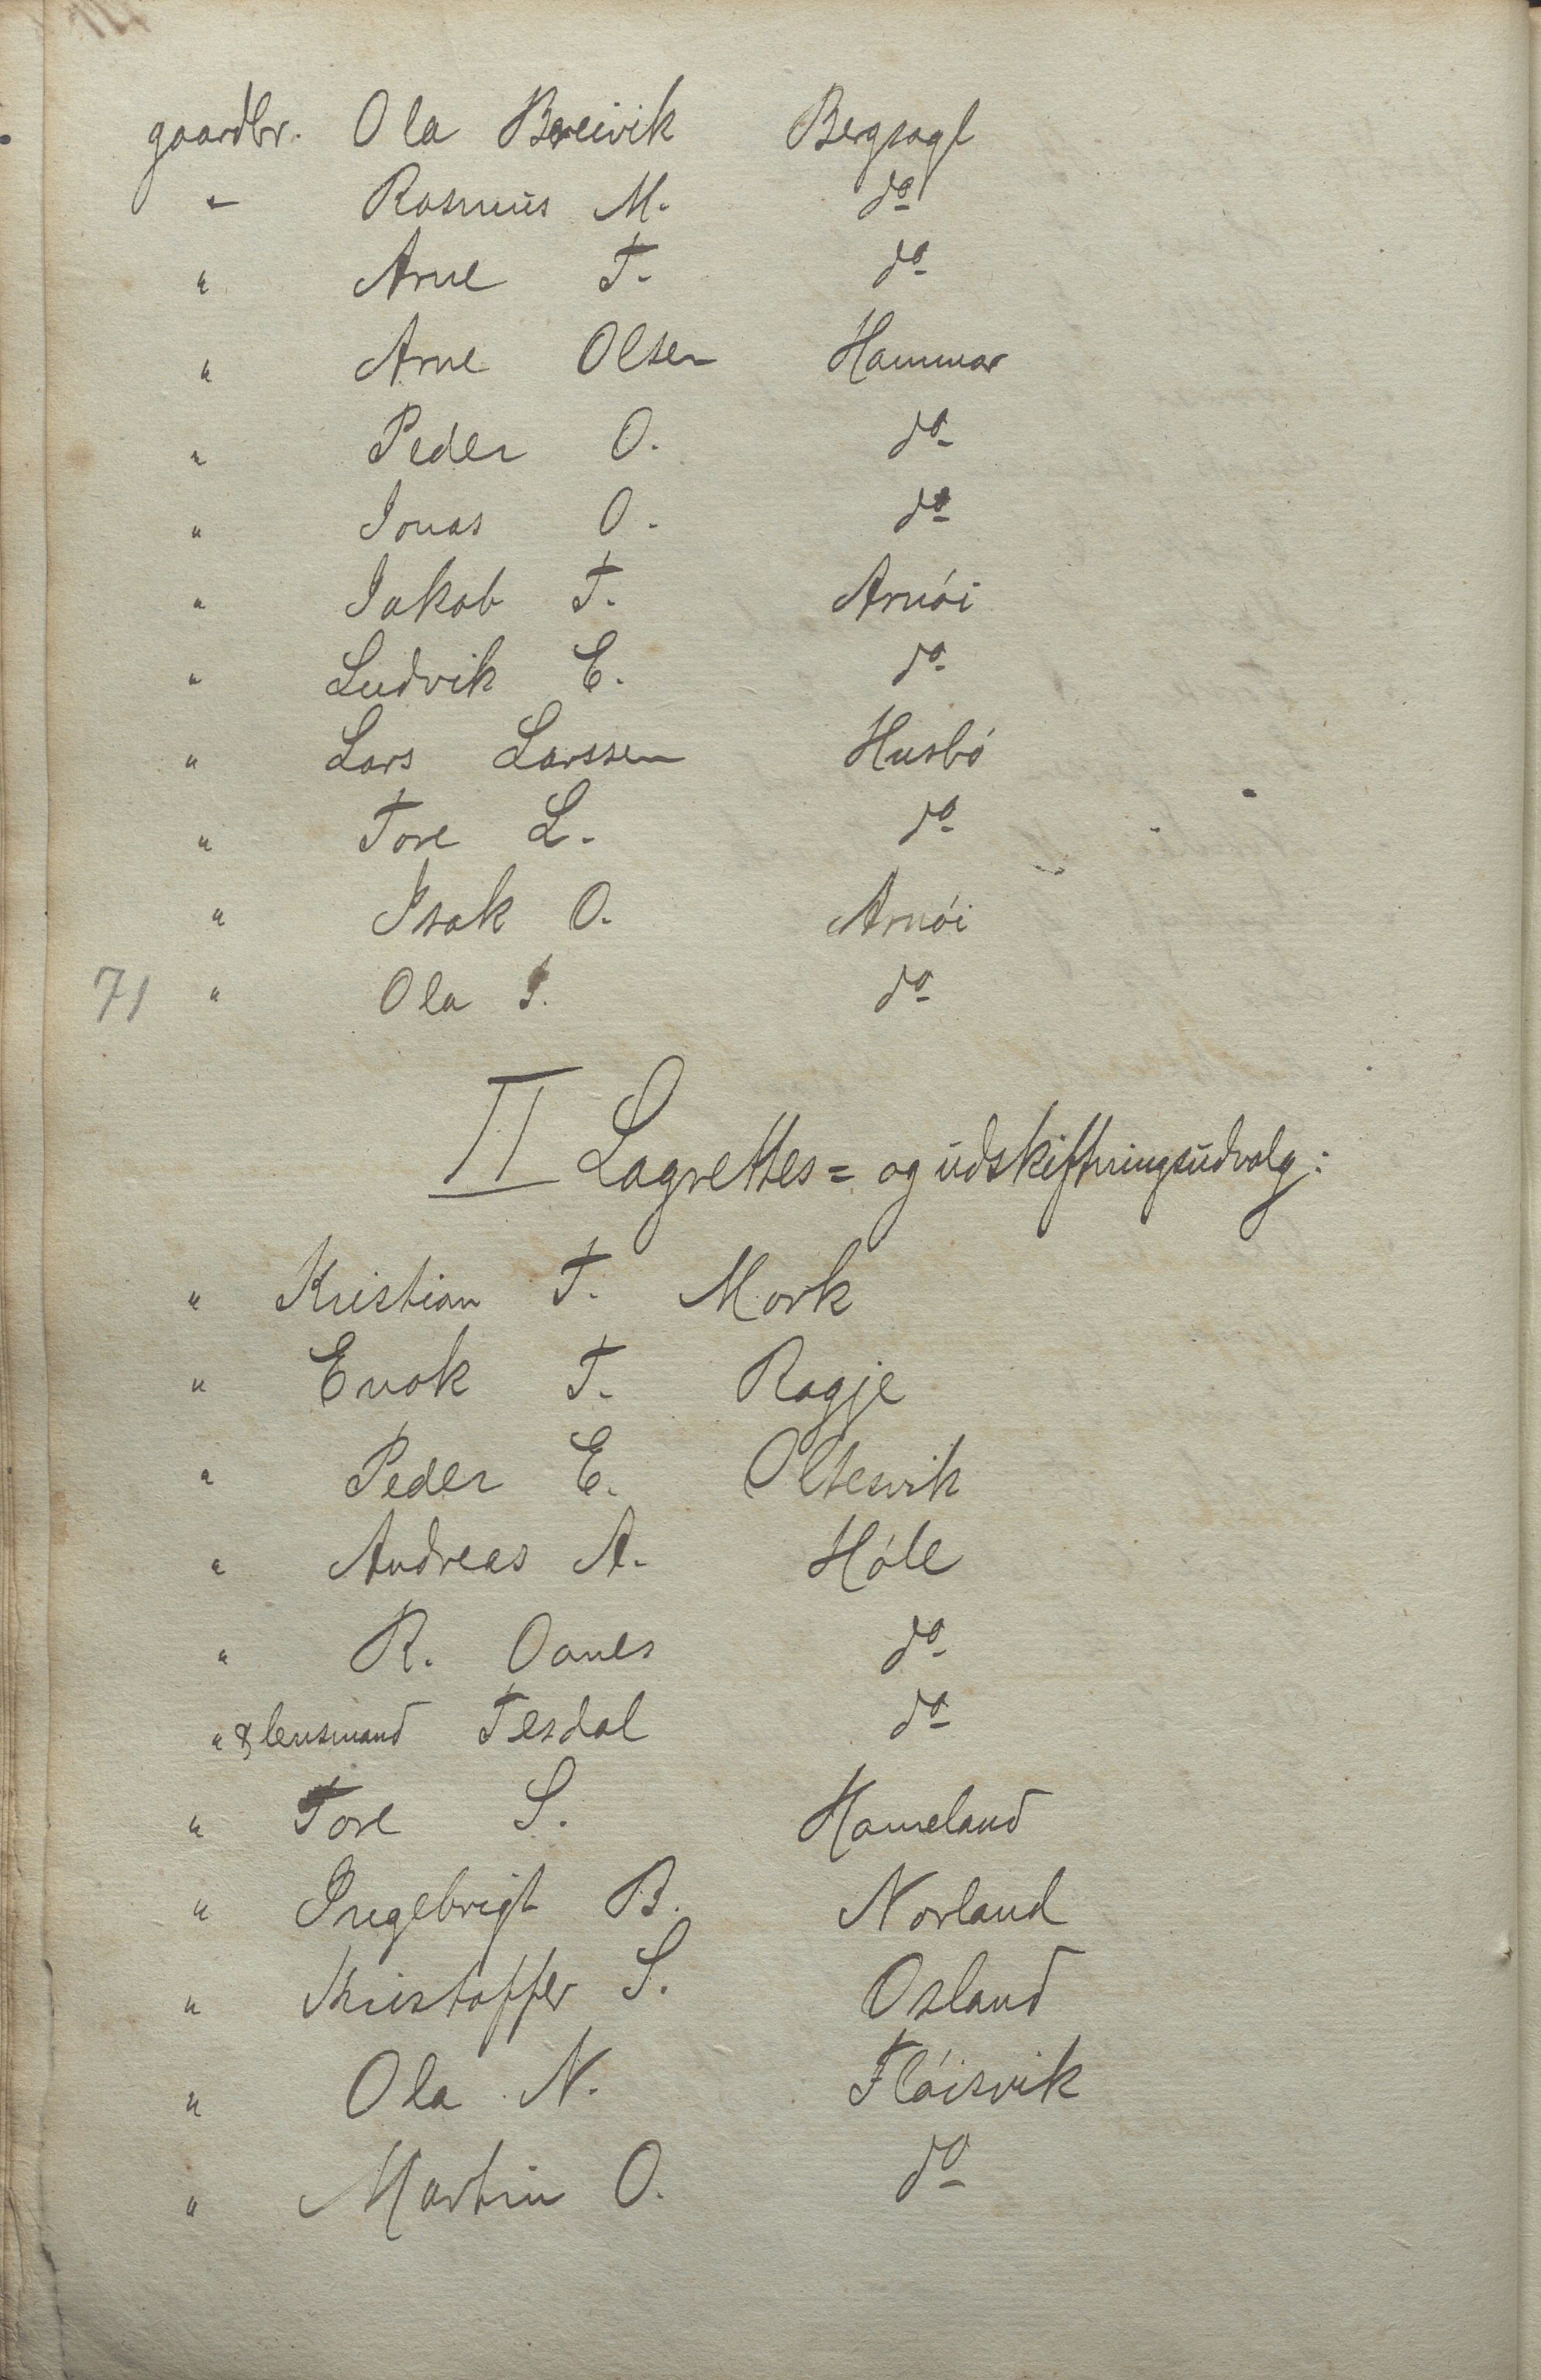 gaardbr. Ola Breivik Bergsagl
" Rasmus M. do
" Arne T. do
" Arne Olsen Hammar
" Peder O. do
" Jonas O. do
" Jakob T. Arnói
" Ludvik E. do
" Lars Larssen Husbó
" Tore L. do
" Isak O. Arnói
71 " Ola I. do
II Lagrettes= og udskiftningsudvalg:
" Kristian T. Mork
" Enok T. Ragje
" Peder E. Oltesvik
" Andreas A. Hóle
" R. Oanes do
" & lensmand Tesdal do
" Tore S. Hameland
" Ingebrigt B. Norland
" Kristoffer S. Osland
" Ola N. Flóisvik
" Martin O. do